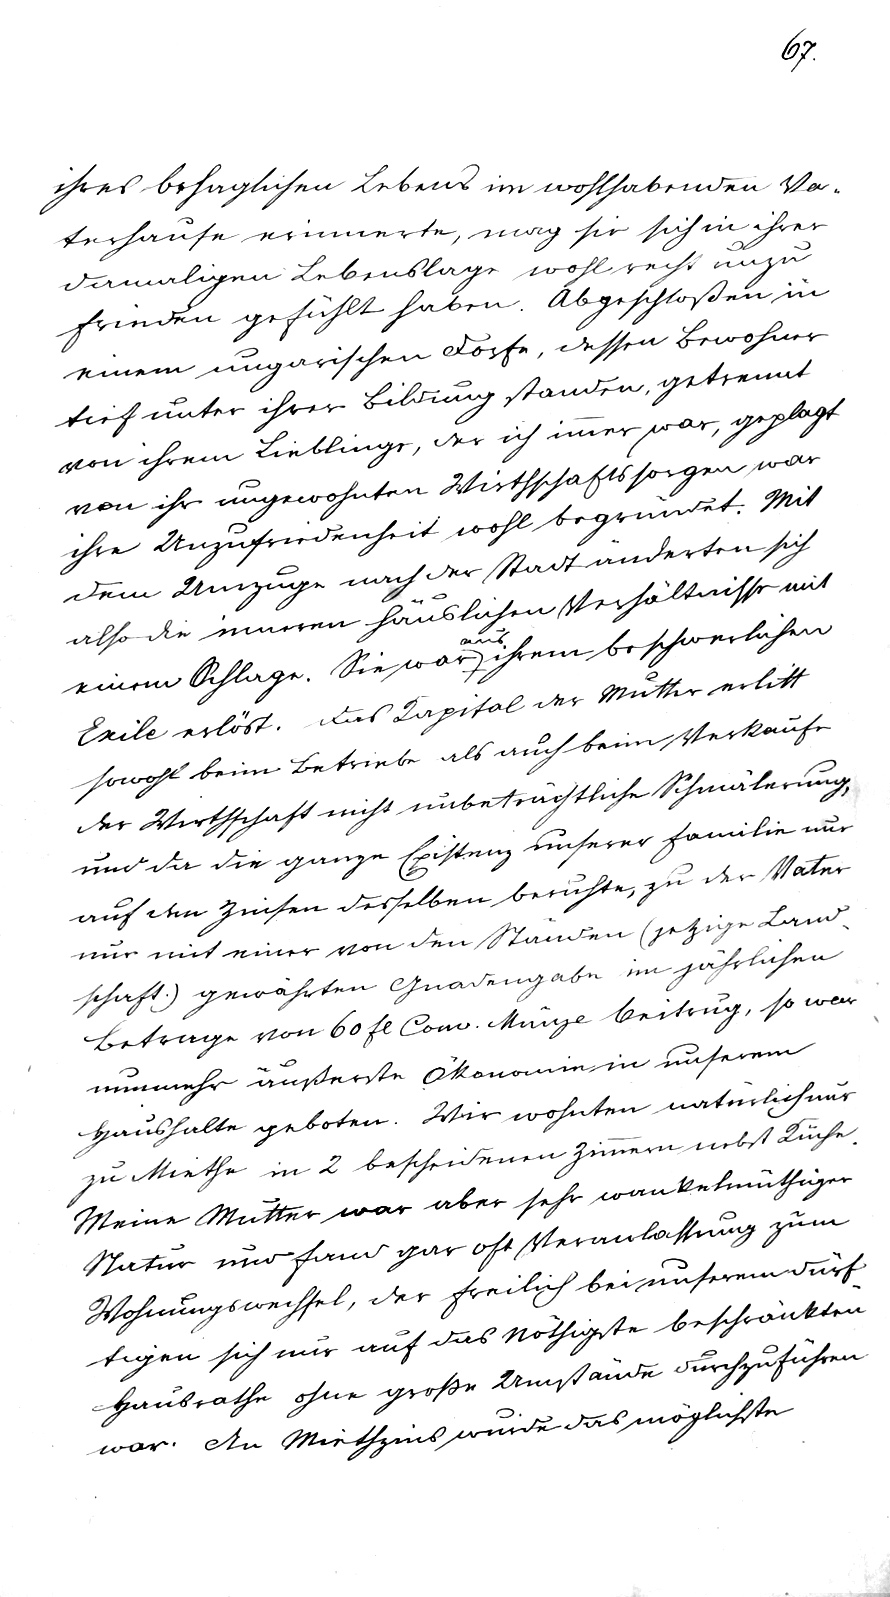 67.
ihres behaglichen Lebens im wohlhabenden Va-
terhause erinnerte, mag sie sich in ihrer
damaligen Lebenslage wohl recht unzu
frieden gefühlt haben. Abgeschloßen in
einem ungarischen Dorfe, dessen Bewohner
tief unter ihrer Bildung standen, getrennt
von ihrem Lieblinge, der ich im̅er war, geplagt
von ihr ungewohnten Wirthschaftssorgen war
ihre Unzufriedenheit wohl begründet. Mit
dem Umzuge nach der Stadt änderten sich
also die inneren häuslichen Verhältnisse mit
einem Schlage. Sie war aus ihrem beschwerlichen
Exile erlöst. Das Kapital der Mutter erlitt
sowohl beim Betriebe als auch beim Verkaufe
der Wirthschaft nicht unbeträchtliche Schmälerung,
und da die ganze Existenz unserer Familie nur
auf den Zinsen desselben beruhte, zu der Vater
nur mit einer von den Ständen (jetzige Land-
schaft.) gewährten Gnadengabe im jährlichen
Betrage von 60 fl Conv. Münze beitrug, so war
nunmehr äußerste Ökonomie in unserem
Haushalte geboten. Wir wohnten natürlich nur
zu Miethe in 2 bescheidenen Zim̅ern nebst Küche.
Meine Mutter war aber sehr wankelmüthiger
Natur und fand gar oft Veranlassung zum
Wohnungswechsel, der freilich bei unserem dürf
tigen sich nur auf das Nöthigste beschränkten
Hausrathe ohne große Umstände durchzuführen
war. An Miethzins wurde das möglichste